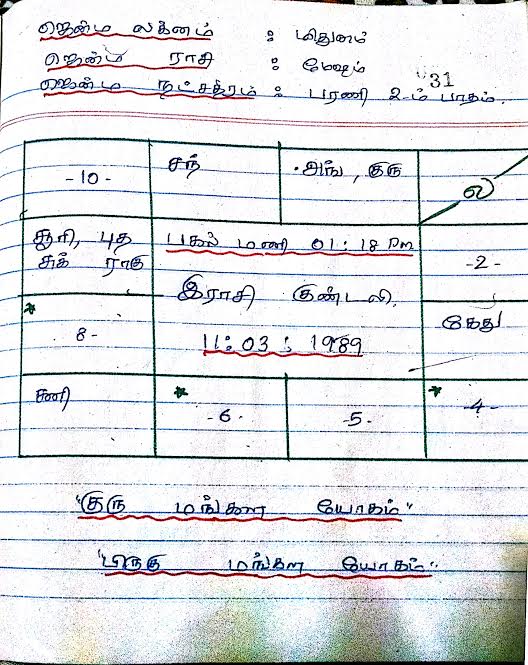 ஜென்ம லக்னம் : மிதுனம்
ஜென்ம ராசி : மேஷம்
ஜென்ம நட்சத்திரம் : பரணி 2-ம் பாதம்.
31
-10- சந் அங், குரு ல
சூரி, புத
சுக் ராகு
பகல் மணி 01:18 Pm
-2-
இராசி குண்டலி.
8- கேது
11:03:1989
சனி -6- -5- -4-
"குரு மங்கள யோகம்"
"பிருகு மங்கள யோகம்"